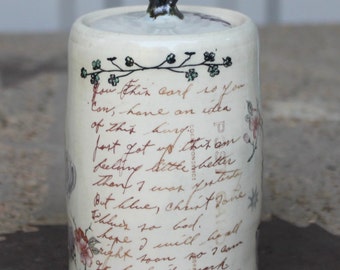 you this card so you
can, have an idea
of this hury.
Just got up this am
feeling little better
than I was yesterday
But blue, Christ I was
blue so bad.
hope I will be all
right soon so I can
to work